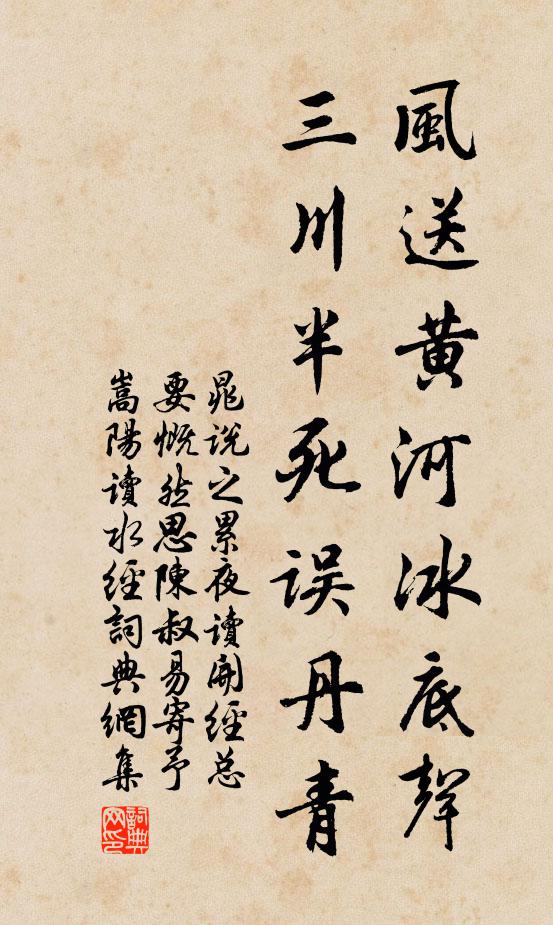 風送黄河冰底聲
三川半死误丹青
晁说之累夜讀開經总
要慨然思陳叔易寄予
嵩陽讀水經詞典網集
詞典网印